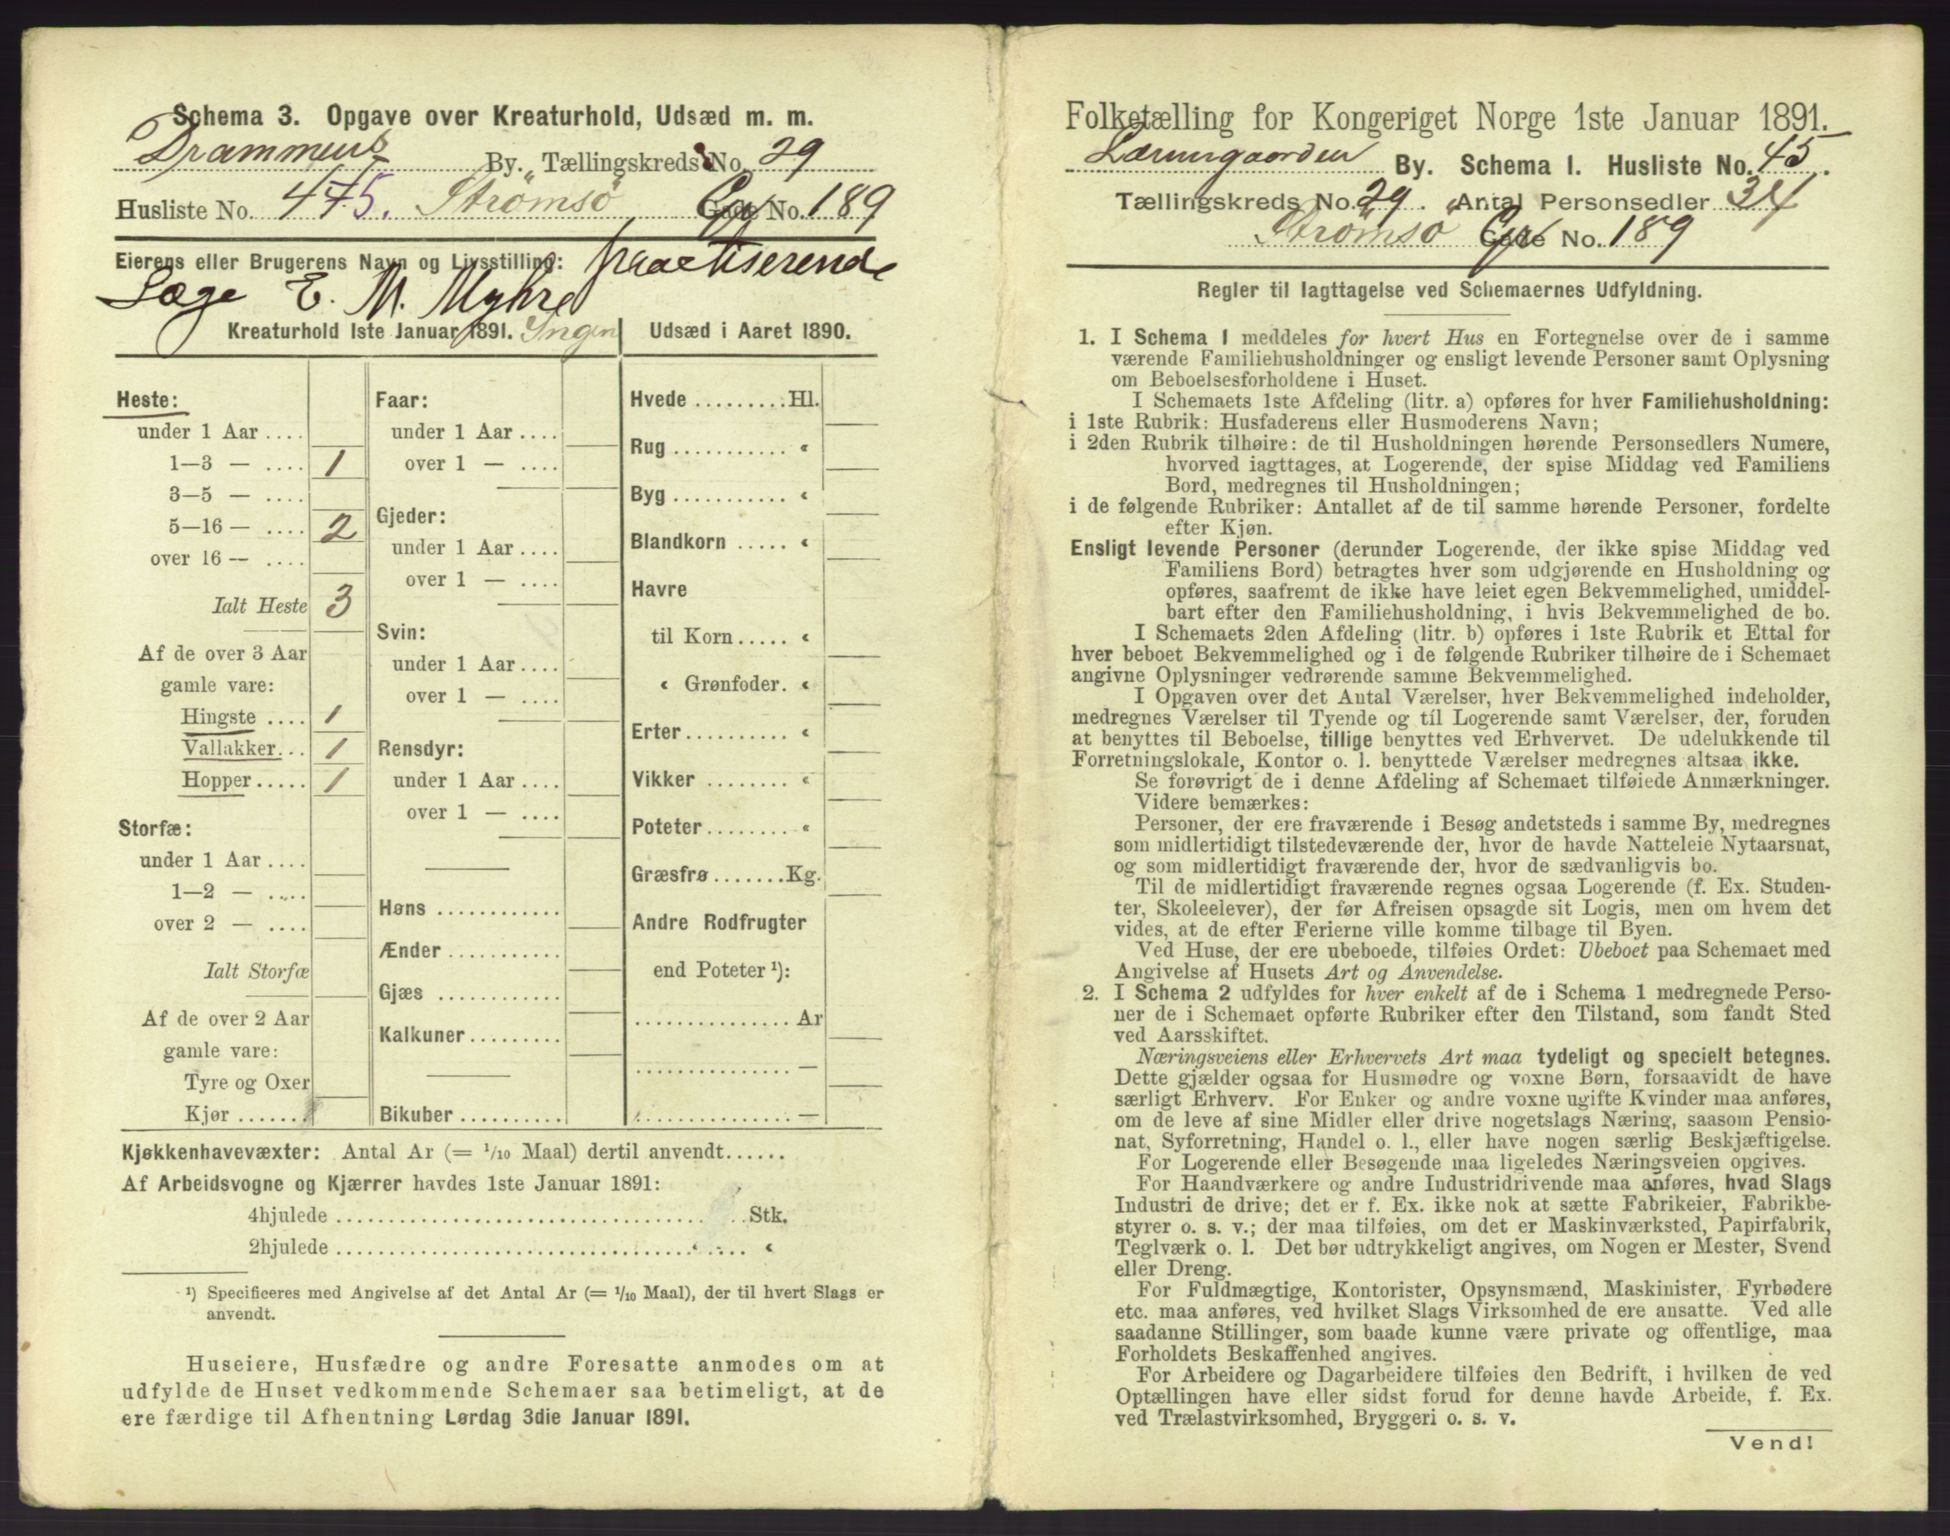 Schema 3. Opgave over Kreaturhold, Udsæd m. m.
Drammens By. Tællingskreds No. 29
Husliste No. 475. Strömsö Gade No. 189
Eierens eller Brugerens Navn og Livsstilling: practiserende
Læge E. M. Myhre
Kreaturhold 1ste Januar 1891. Ingen
Heste:
under 1 Aar ....
1—3 — .... 1
3—5 — ....
5—16 — .... 2
over 16 — ....
Ialt Heste 3
Af de over 3 Aar
gamle vare:
Hingste .... 1
Vallakker... 1
Hopper..... 1
Storfæ:
under 1 Aar ....
1—2 — ....
over 2 — ....
Ialt Storfæ
Af de over 2 Aar
gamle vare:
Tyre og Oxer
Kjør .......
Faar:
under 1 Aar ....
over 1 — ....
Gjeder:
under 1 Aar ....
over 1 — ....
Svin:
under 1 Aar ....
over 1 — ....
Rensdyr:
under 1 Aar ....
over 1 — ....
Høns ............
Ænder ...........
Gjæs ............
Kalkuner.........
Bikuber ..........
Udsæd i Aaret 1890.
Hvede .........Hl.
Rug ........... «
Byg ........... «
Blandkorn ..... «
Havre
til Korn ..... «
« Grønfoder. «
Erter.......... «
Vikker ........ «
Poteter........ «
Græsfrø.......Kg.
Andre Rodfrugter
end Poteter ¹):
............... Ar
............... —
............... —
Kjøkkenhavevæxter: Antal Ar (= 1/10 Maal) dertil anvendt......
Af Arbeidsvogne og Kjærrer havdes 1ste Januar 1891:
4hjulede ........................................ Stk.
2hjulede ........................................ «
¹) Specificeres med Angivelse af det Antal Ar (= 1/10 Maal), der til hvert Slags er
anvendt.
Huseiere, Husfædre og andre Foresatte anmodes om at
udfylde de Huset vedkommende Schemaer saa betimeligt, at de
ere færdige til Afhentning Lørdag 3die Januar 1891.
Folketælling for Kongeriget Norge 1ste Januar 1891.
By. Schema I. Husliste No. 45.
Tællingskreds No. 29. Antal Personsedler 34
Strömsö Gade No. 189
Regler til Iagttagelse ved Schemaernes Udfyldning.
1. I Schema I meddeles for hvert Hus en Fortegnelse over de i samme
værende Familiehusholdninger og ensligt levende Personer samt Oplysning
om Beboelsesforholdene i Huset.
I Schemaets 1ste Afdeling (litr. a) opføres for hver Familiehusholdning:
i 1ste Rubrik: Husfaderens eller Husmoderens Navn;
i 2den Rubrik tilhøire: de til Husholdningen hørende Personsedlers Numere,
hvorved iagttages, at Logerende, der spise Middag ved Familiens
Bord, medregnes til Husholdningen;
i de følgende Rubriker: Antallet af de til samme hørende Personer, fordelte
efter Kjøn.
Ensligt levende Personer (derunder Logerende, der ikke spise Middag ved
Familiens Bord) betragtes hver som udgjørende en Husholdning og
opføres, saafremt de ikke have leiet egen Bekvemmelighed, umiddel-
bart efter den Familiehusholdning, i hvis Bekvemmelighed de bo.
I Schemaets 2den Afdeling (litr. b) opføres i 1ste Rubrik et Ettal for
hver beboet Bekvemmelighed og i de følgende Rubriker tilhøire de i Schemaet
angivne Oplysninger vedrørende samme Bekvemmelighed.
I Opgaven over det Antal Værelser, hver Bekvemmelighed indeholder,
medregnes Værelser til Tyende og til Logerende samt Værelser, der, foruden
at benyttes til Beboelse, tillige benyttes ved Erhvervet. De udelukkende til
Forretningslokale, Kontor o. l. benyttede Værelser medregnes altsaa ikke.
Se forøvrigt de i denne Afdeling af Schemaet tilføiede Anmærkninger.
Videre bemærkes:
Personer, der ere fraværende i Besøg andetsteds i samme By, medregnes
som midlertidigt tilstedeværende der, hvor de havde Natteleie Nytaarsnat,
og som midlertidigt fraværende der, hvor de sædvanligvis bo.
Til de midlertidigt fraværende regnes ogsaa Logerende (f. Ex. Studen-
ter, Skoleelever), der før Afreisen opsagde sit Logis, men om hvem det
vides, at de efter Ferierne ville komme tilbage til Byen.
Ved Huse, der ere ubeboede, tilføies Ordet: Ubeboet paa Schemaet med
Angivelse af Husets Art og Anvendelse.
2. I Schema 2 udfyldes for hver enkelt af de i Schema 1 medregnede Perso-
ner de i Schemaet opførte Rubriker efter den Tilstand, som fandt Sted
ved Aarsskiftet.
Næringsveiens eller Erhvervets Art maa tydeligt og specielt betegnes.
Dette gjælder ogsaa for Husmødre og voxne Børn, forsaavidt de have
særligt Erhverv. For Enker og andre voxne ugifte Kvinder maa anføres,
om de leve af sine Midler eller drive nogetslags Næring, saasom Pensio-
nat, Syforretning, Handel o. l., eller have nogen særlig Beskjæftigelse.
For Logerende eller Besøgende maa ligeledes Næringsveien opgives.
For Haandværkere og andre Industridrivende maa anføres, hvad Slags
Industri de drive; det er f. Ex. ikke nok at sætte Fabrikeier, Fabrikbe-
styrer o. s. v.; der maa tilføies, om det er Maskinværksted, Papirfabrik,
Teglværk o. l. Det bør udtrykkeligt angives, om Nogen er Mester, Svend
eller Dreng.
For Fuldmægtige, Kontorister, Opsynsmænd, Maskinister, Fyrbødere
etc. maa anføres, ved hvilket Slags Virksomhed de ere ansatte. Ved alle
saadanne Stillinger, som baade kunne være private og offentlige, maa
Forholdets Beskaffenhed angives.
For Arbeidere og Dagarbeidere tilføies den Bedrift, i hvilken de ved
Optællingen have eller sidst forud for denne havde Arbeide, f. Ex.
ved Trælastvirksomhed, Bryggeri o. s. v.
Vend!